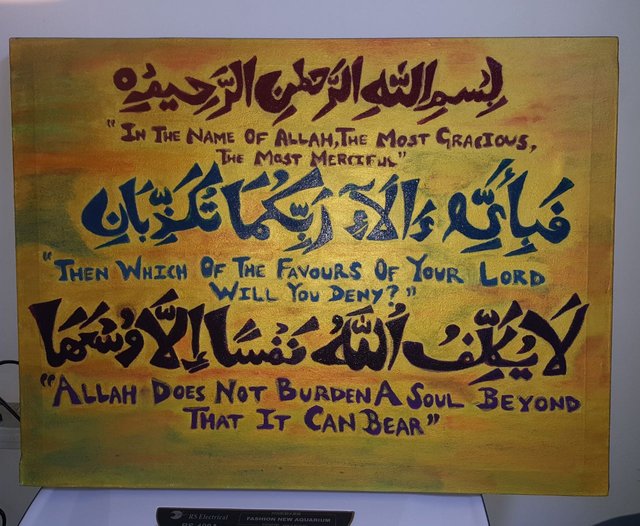 بِسْمِ اللَّهِ الرَّحْمٰنِ الرَّحِيمِ
"IN THE NAME OF ALLAH, THE MOST GRACIOUS,
THE MOST MERCIFUL"
فَبِأَيِّ ءَالَآءِ رَبِّكُمَا تُكَذِّبَانِ
"THEN WHICH OF THE FAVOURS OF YOUR LORD
WILL YOU DENY?"
لَا يُكَلِّفُ اللَّهُ نَفْسًا إِلَّا وُسْعَهَا
"ALLAH DOES NOT BURDEN A SOUL BEYOND
THAT IT CAN BEAR"
RS Electrical
FASHION NEW AQUARIUM